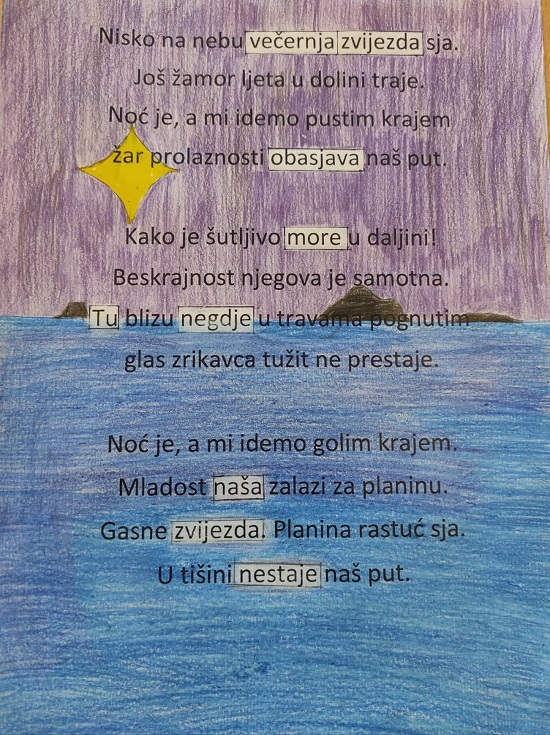 Nisko na nebu večernja zvijezda sja.
Još žamor ljeta u dolini traje.
Noć je, a mi idemo pustim krajem
žar prolaznosti obasjava naš put.
Kako je šutljivo more u daljini!
Beskrajnost njegova je samotna.
Tu blizu negdje u travama pognutim
glas zrikavca tužit ne prestaje.
Noć je, a mi idemo golim krajem.
Mladost naša zalazi za planinu.
Gasne zvijezda. Planina rastuć sja.
U tišini nestaje naš put.